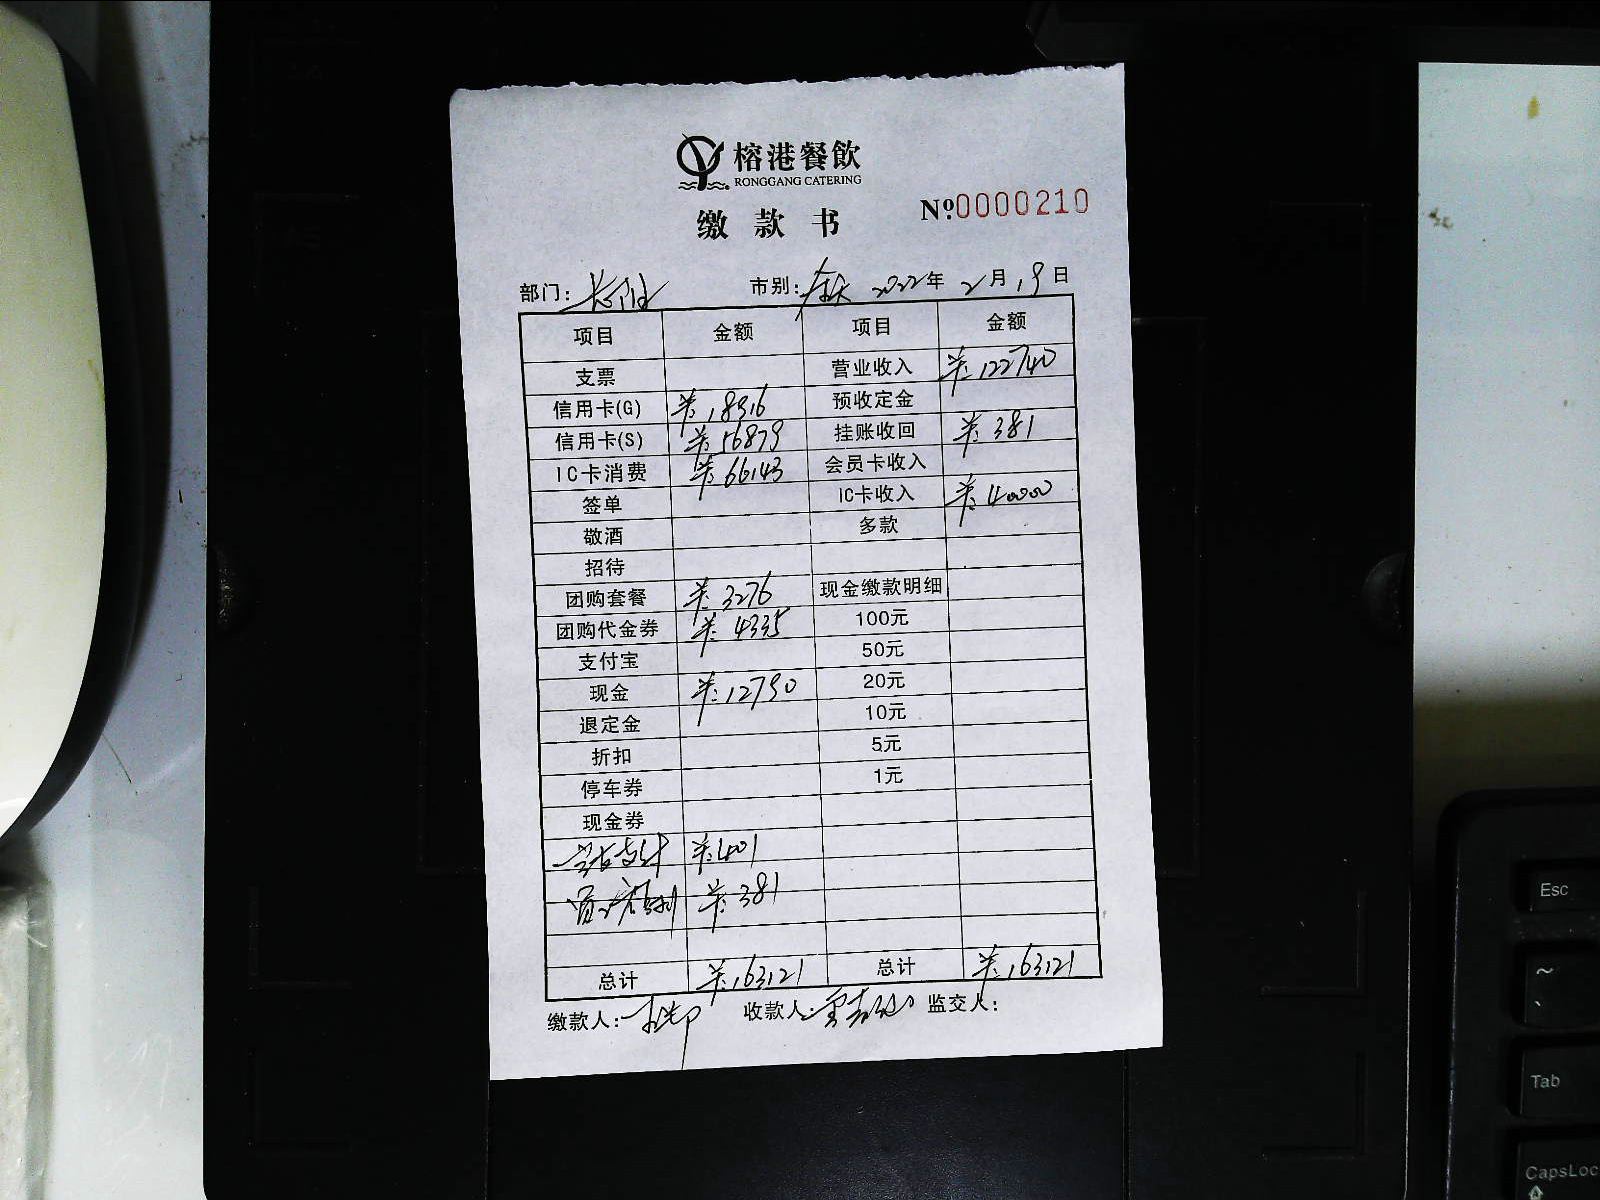 榕港餐飲
RONGGANG CATERING
缴款书
Nº0000210
部门: 市别:全天 2022年 2月 19日
项目 金额 项目 金额
支票 营业收入 ¥:122740
信用卡(G) ¥:18916 预收定金
信用卡(S) ¥:56879 挂账收回 ¥:381
IC卡消费 ¥:66143 会员卡收入
签单 IC卡收入 ¥:40000
敬酒 多款
招待
团购套餐 ¥:3276 现金缴款明细
团购代金券 ¥:4335 100元
支付宝 50元
现金 ¥:12790 20元
退定金 10元
折扣 5元
停车券 1元
现金券
支付 ¥:401
¥:381
总计 ¥:163121 总计 ¥:163121
缴款人: 收款人: 监交人:
Esc
~
Tab
CapsLoc